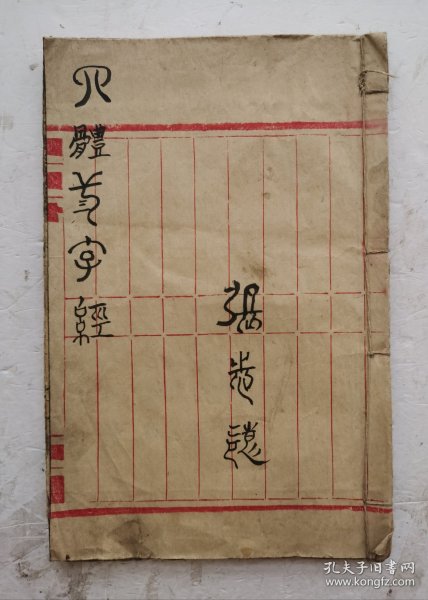 四體弎字經
張
孔夫子旧書网
www.kongfz.com